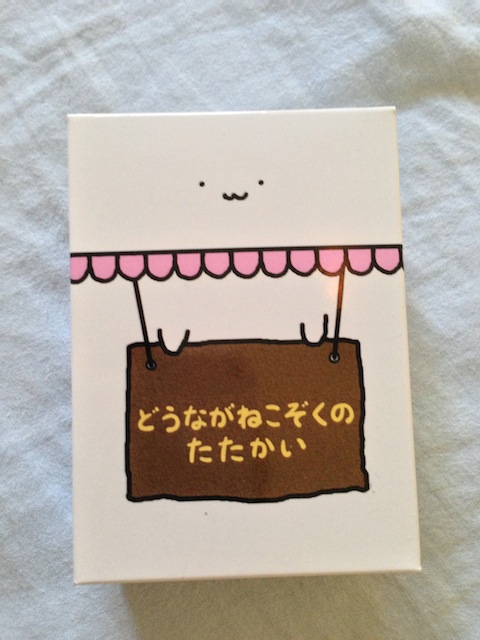 どうながねこぞくの
たたかい